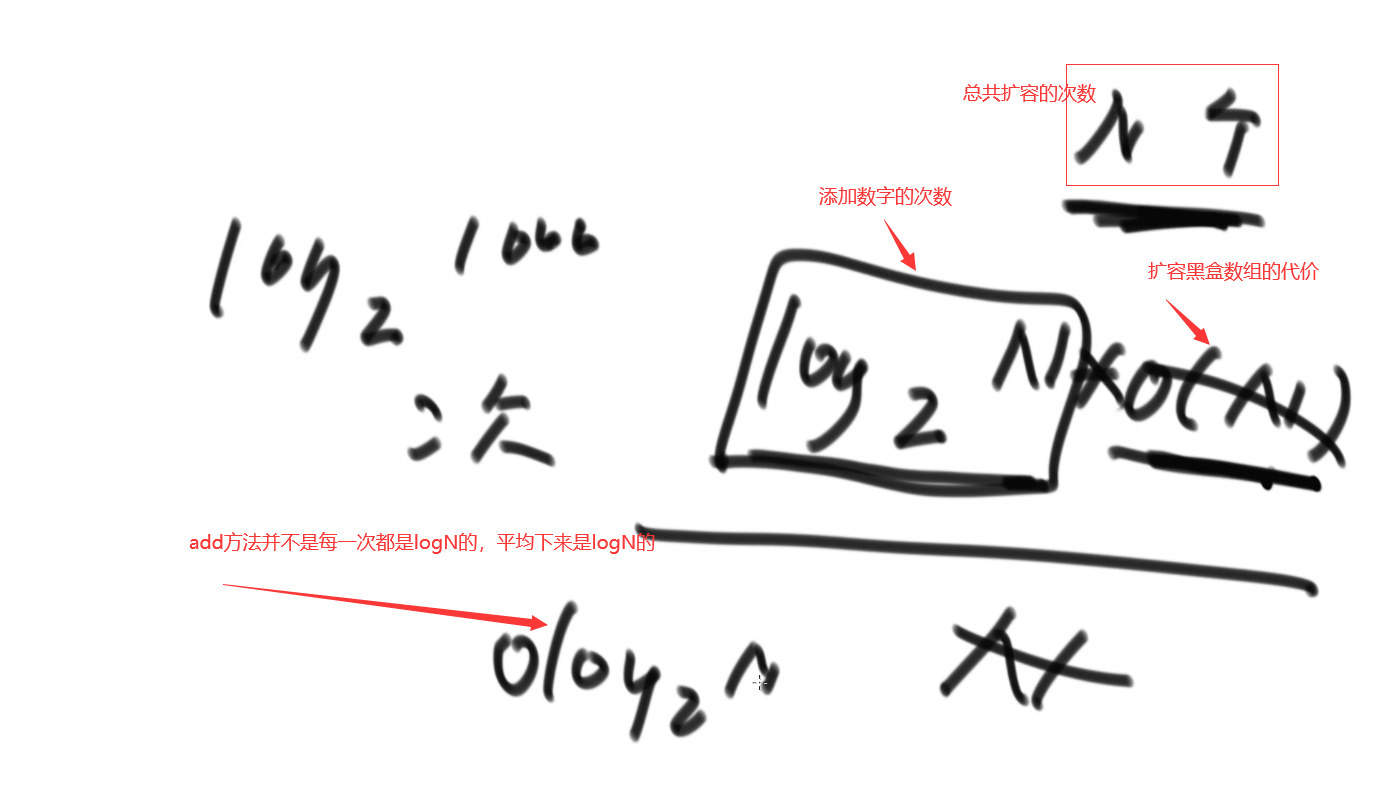 总共扩容的次数
N 个
添加数字的次数
log₂ 1000
次
扩容黑盒数组的代价
log₂ N × O(N)
add方法并不是每一次都是logN的，平均下来是logN的
O log₂ N
N